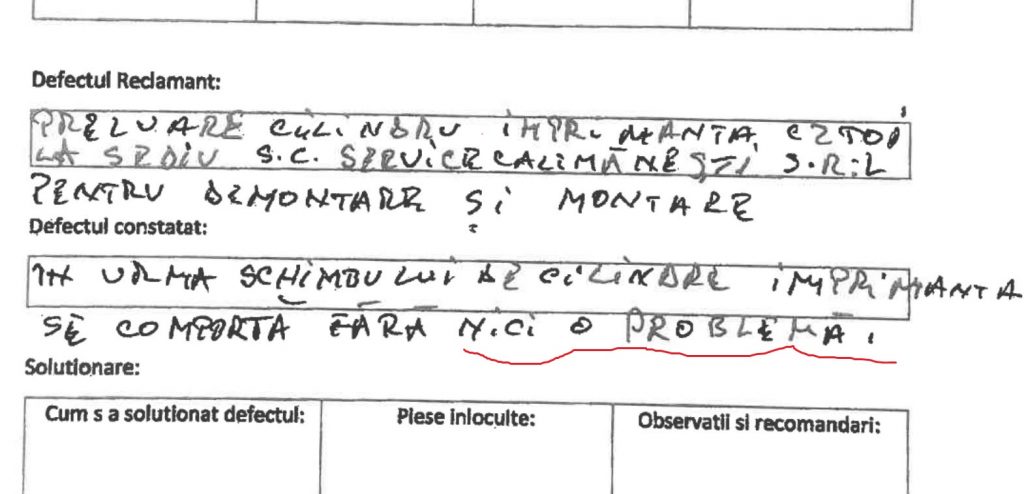 Defectul Reclamant:
PRELUARE CILINDRU IMPRIMANTA
LA SEDIU S.C. SERVICE CALIMĂNEȘTI S.R.L
PENTRU DEMONTARE ȘI MONTARE
Defectul constatat:
IN URMA SCHIMBULUI DE CILINDRE IMPRIMANTA
SE COMPORTA FĂRĂ NICI O PROBLEMĂ.
Solutionare:
Cum s a solutionat defectul: Piese inlocuite: Observatii si recomandari: